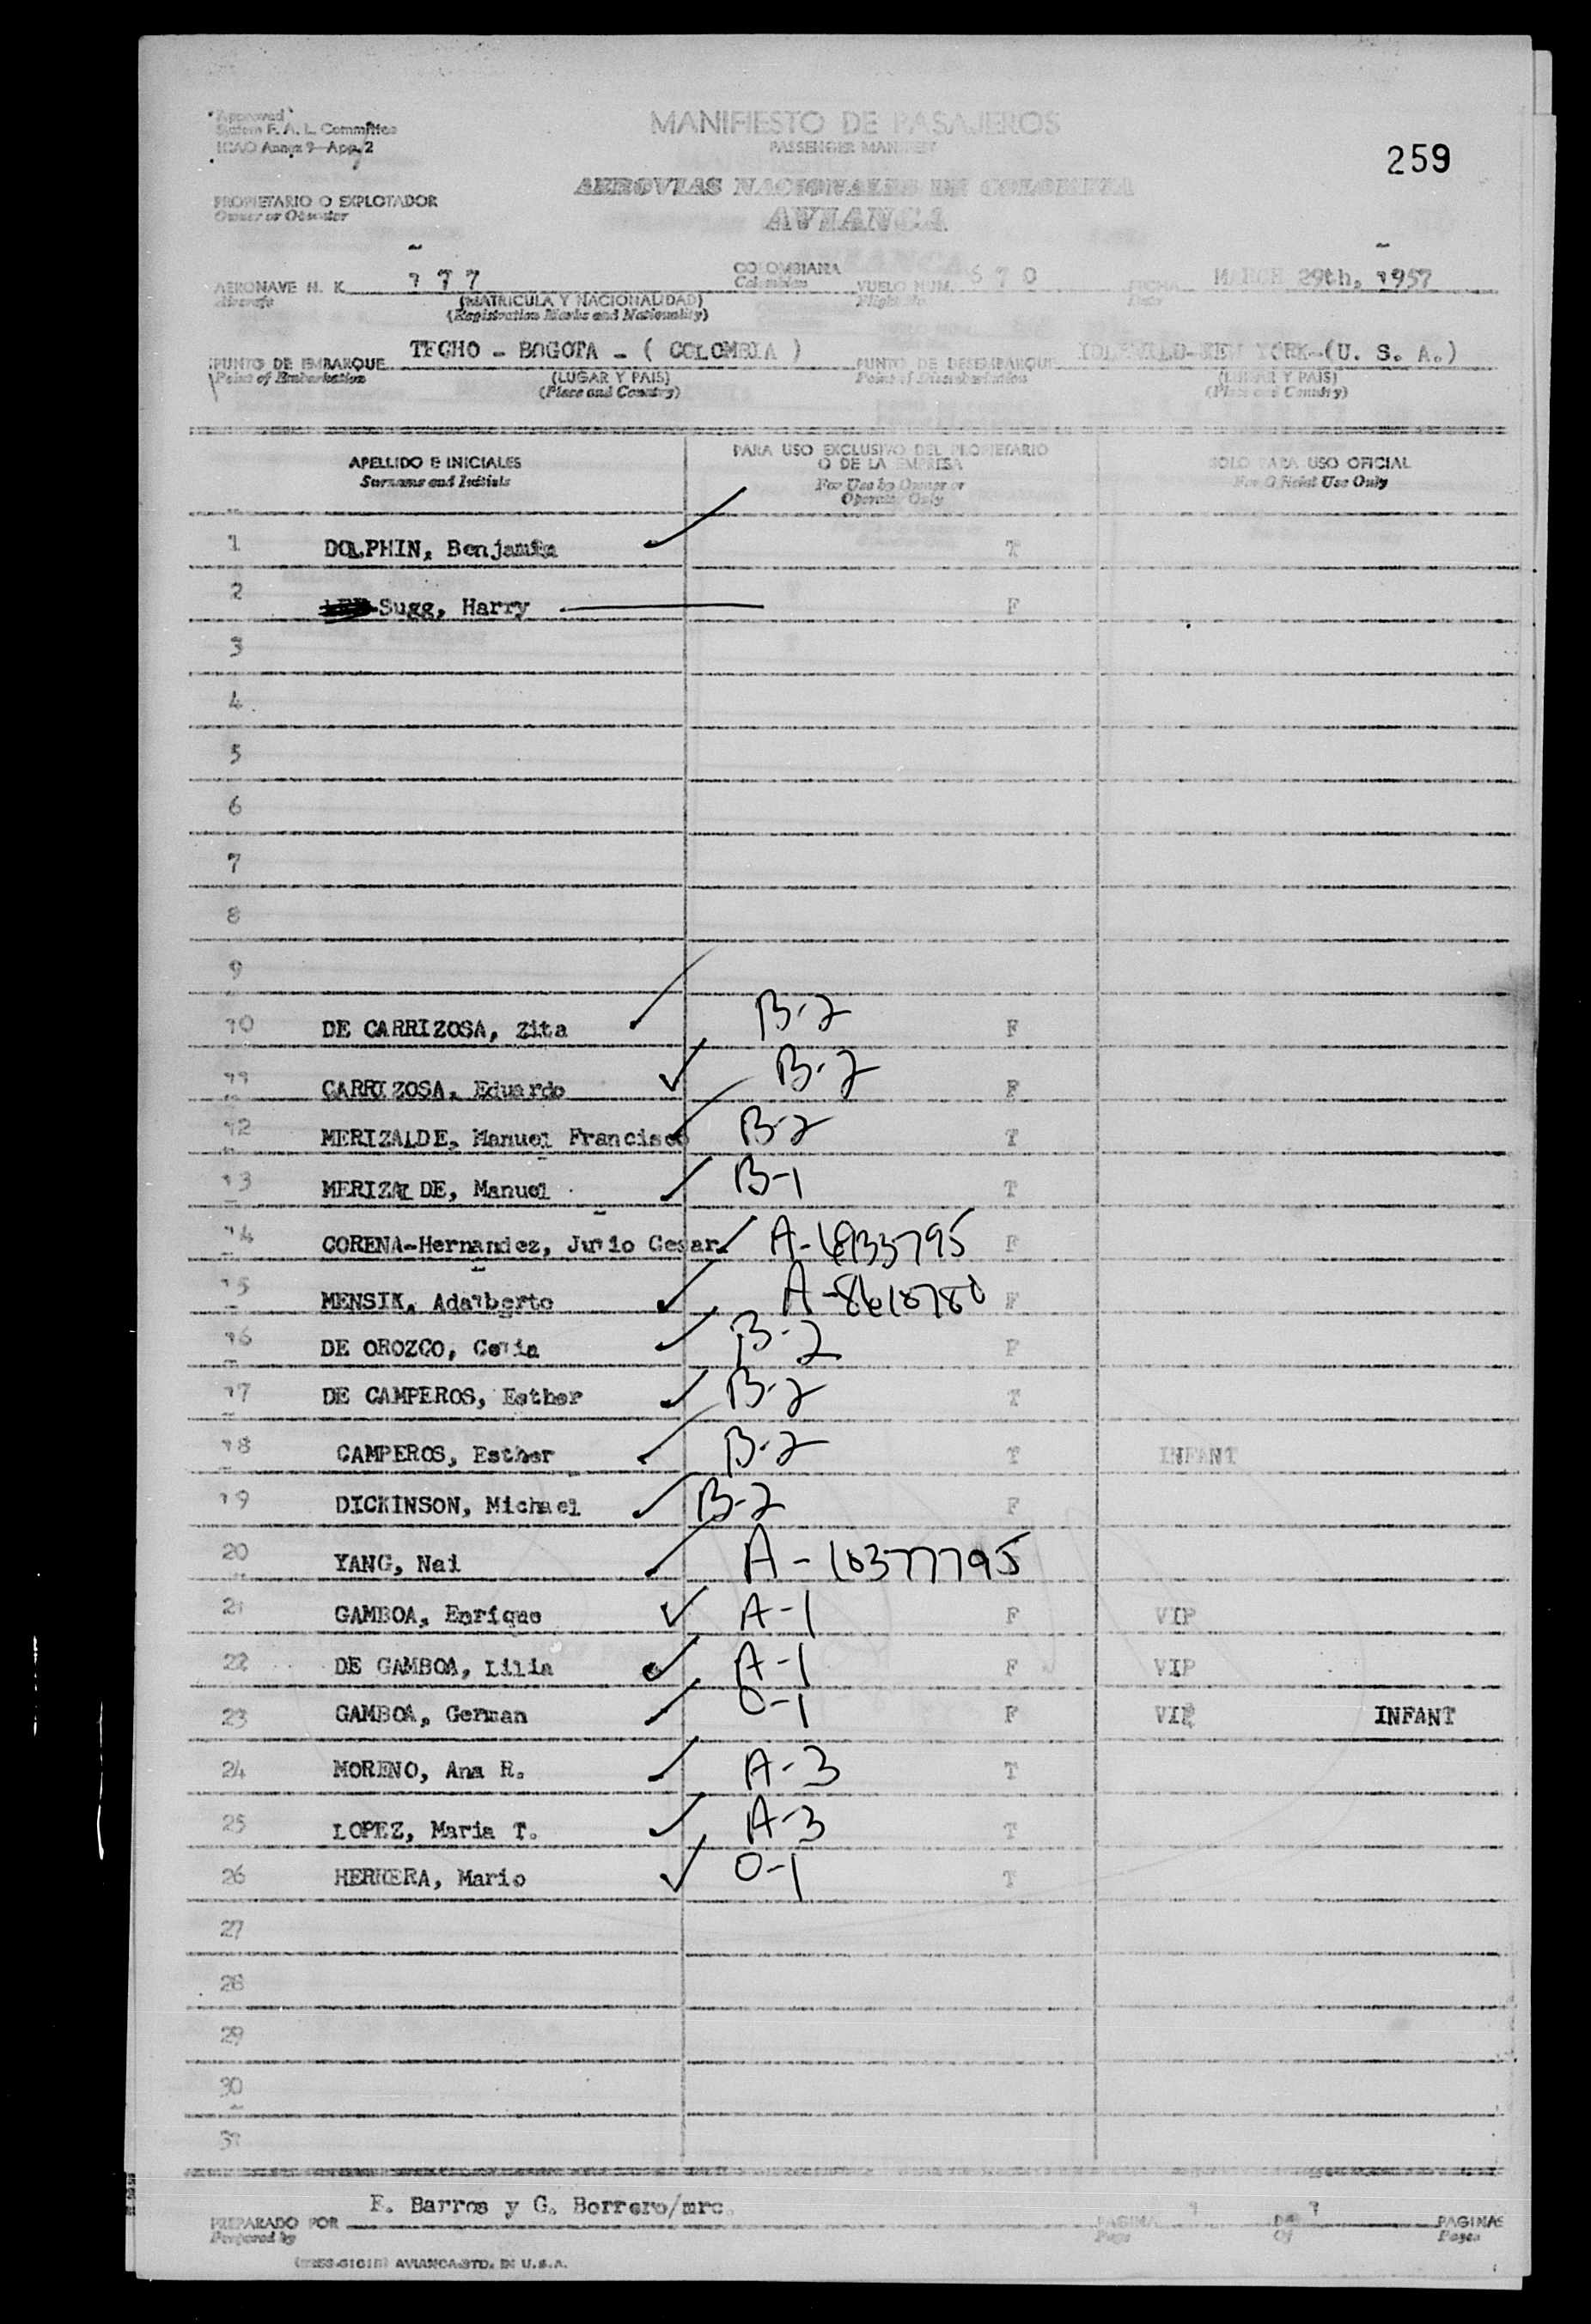 Approved
System F. A. L. Committee
ICAO Annex 9-App. 2
MANIFIESTO DE PASAJEROS
PASSENGER MANIFEST
259
AEROVIAS NACIONALES DE COLOMBIA
AVIANCA
PROPIETARIO O EXPLOTADOR
Owner or Operator
AERONAVE H. K. 177 COLOMBIANA VUELO NUM. 670 FECHA MARCH 29th, 1957
Aircraft (MATRICULA Y NACIONALIDAD) Colombian Flight No. Date
(Registration Marks and Nationality)
PUNTO DE EMBARQUE TECHO - BOGOTA - ( COLOMBIA ) PUNTO DE DESEMBARQUE IDLEWILD-NEW YORK-(U. S. A.)
Point of Embarkation (LUGAR Y PAIS) Point of Disembarkation (LUGAR Y PAIS)
(Place and Country) (Place and Country)
APELLIDO E INICIALES PARA USO EXCLUSIVO DEL PROPIETARIO O DE LA EMPRESA SOLO PARA USO OFICIAL
Surname and Initials For Use by Owner or Operator Only For Official Use Only
1 DOLPHIN, Benjamin T
2 Sugg, Harry F
3
4
5
6
7
8
9
10 DE CARRIZOSA, Zita B-2 F
11 CARRIZOSA, Eduardo B-2 F
12 MERIZALDE, Manuel Francisco B-2 T
13 MERIZALDE, Manuel B-1 T
14 CORENA-Hernandez, Julio Cesar F
15 MENSIK, Adalberto F
16 DE OROZCO, Celia B-2 F
17 DE CAMPEROS, Esther B-2 T
18 CAMPEROS, Esther B-2 T INFANT
19 DICKINSON, Michael B-2 F
20 YANG, Nai A-10377795
21 GAMBOA, Enrique A-1 F VIP
22 DE GAMBOA, Lilia A-1 F VIP
23 GAMBOA, German O-1 F VIP INFANT
24 MORENO, Ana R. A-3 T
25 LOPEZ, Maria T. A-3 T
26 HERRERA, Mario O-1 T
27
28
29
30
31
PREPARADO POR F. Barros y G. Borrero/mrc. PAGINA 1 DE 1 PAGINAS
Prepared by Page Of Pages
AVIANCA-STD. IN U.S.A.